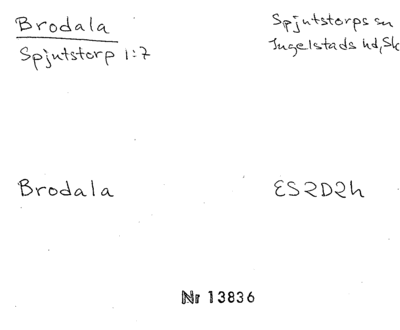 Brodala
Spjutstorp 1:7
Spjutstorps sn
Ingelstads hd, Sk
Brodala
ES2D2h
Nr 13836